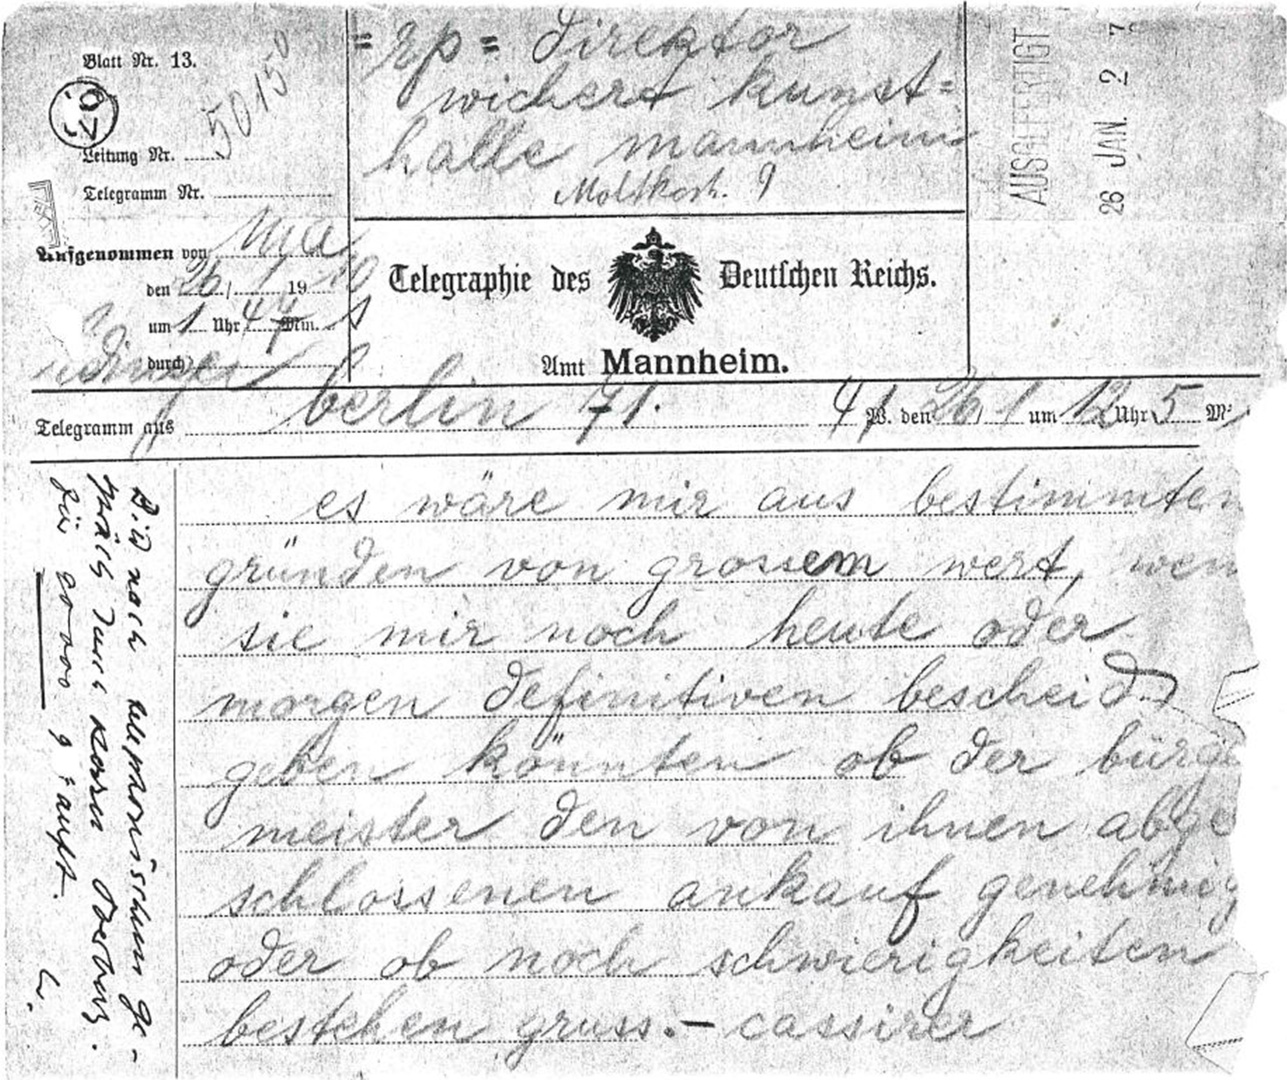 Blatt Nr. 13.
Leitung Nr.
50150
Telegramm Nr.
Aufgenommen von
den 26/1 1910
um 1 Uhr 47 Min.
durch
= rp = direktor
wichert kunst=
halle mannheim
Moltkestr. 9
AUSGEFERTIGT
26 JAN. 2 7
Telegraphie des Deutschen Reichs.
Amt Mannheim.
Telegramm aus berlin 71. 41 W. den 26/1 um 12 Uhr 5 M
es wäre mir aus bestimmten
gründen von grossem wert, wen
sie mir noch heute oder
morgen definitiven bescheid
geben könnten ob der bürge
meister den von ihnen abge
schlossenen ankauf genehmig
oder ob noch schwierigkeiten
bestehen gruss.— cassirer
Bild nach telephonischem Ge-
spräch mit Herrn Oberburg.
für 90000 gekauft.